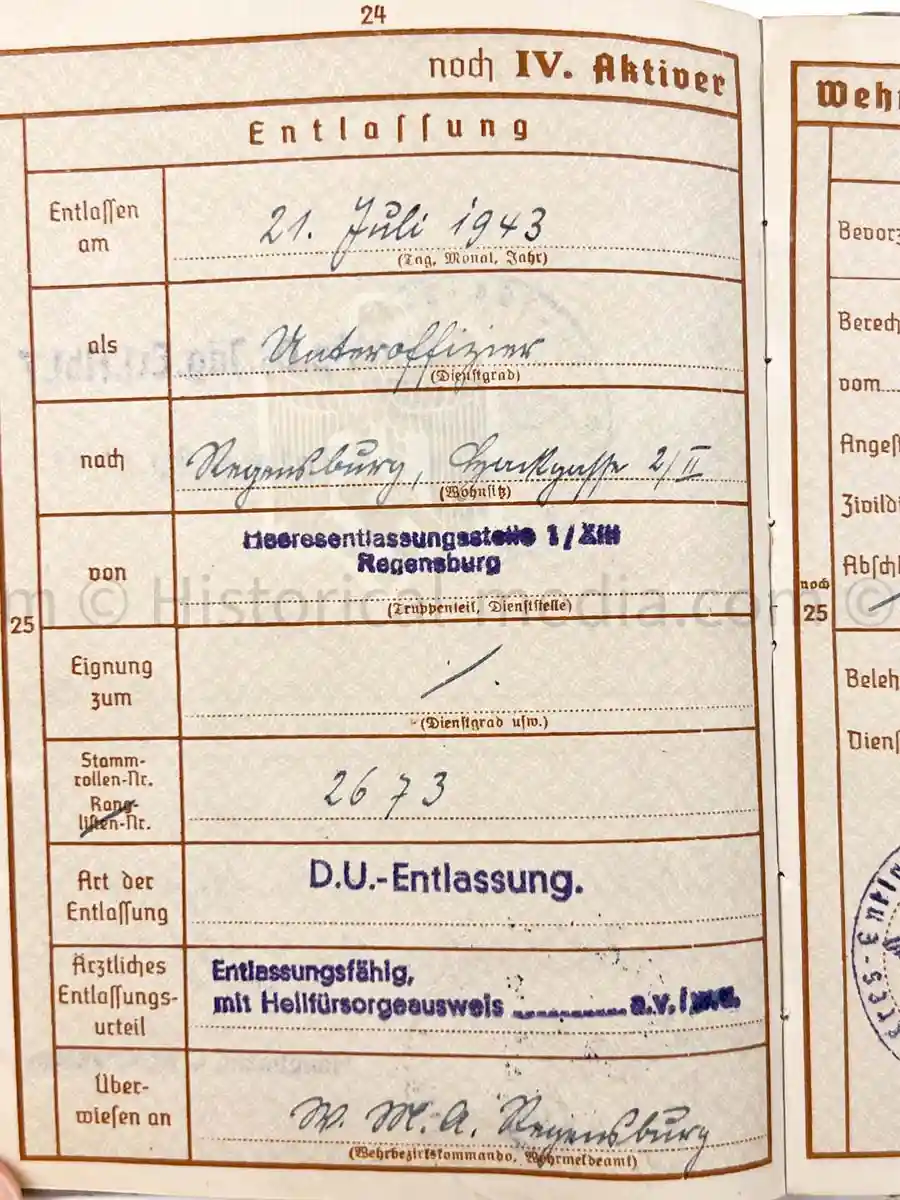 24
noch IV. Aktiver
Entlassung
Entlassen am
21. Juli 1943
(Tag, Monat, Jahr)
als
Unteroffizier
(Dienstgrad)
nach
Regensburg, 2/II
(Wohnsitz)
von
Heeresentlassungsstelle 1/XIII
Regensburg
(Truppenteil, Dienststelle)
© Historical-media.com ©
25
Eignung
zum
(Dienstgrad usw.)
Stamm-
rollen-Nr.
Rang-
listen-Nr.
2673
Art der
Entlassung
D.U.-Entlassung.
Ärztliches
Entlassungs-
urteil
Entlassungsfähig,
mit Heilfürsorgeausweis a.v./
Über-
wiesen an
W. M. A. Regensburg
(Wehrbezirkskommando, Wehrmeldeamt)
Wehr
Bevorz
Berech
vom
Angest
Zivildi
Abschl
noch
25
Beleh
Diens